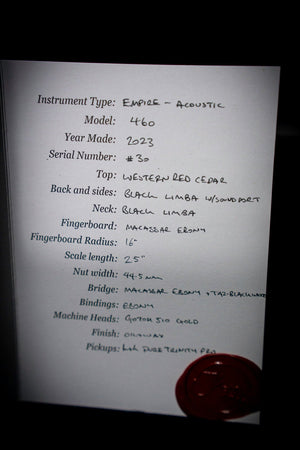 Instrument Type: EMPIRE - ACOUSTIC
Model: 460
Year Made: 2023
Serial Number: #30
Top: WESTERN RED CEDAR
Back and sides: BLACK LIMBA W/SOUNDPORT
Neck: BLACK LIMBA
Fingerboard: MACASSAR EBONY
Fingerboard Radius: 16"
Scale length: 25"
Nut width: 44.5mm
Bridge: MACASSAR EBONY +
Bindings: EBONY
Machine Heads: GOTOH 510 GOLD
Finish:
Pickups: TRINITY PRO